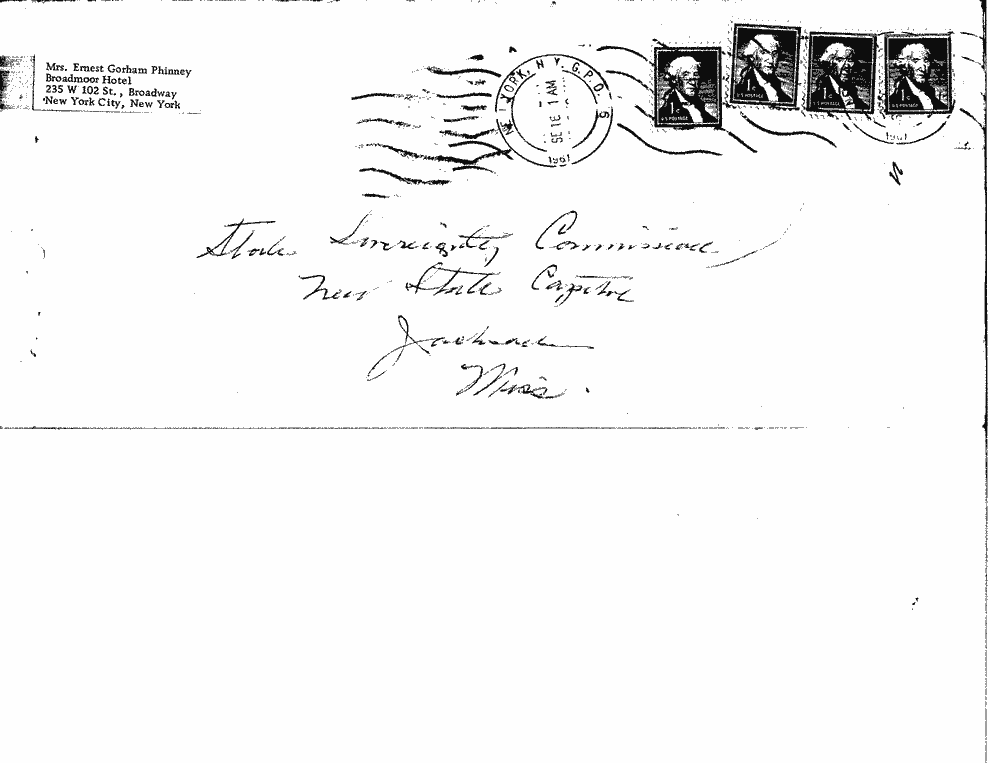 Mrs. Ernest Gorham Phinney
Broadmoor Hotel
235 W 102 St., Broadway
New York City, New York
NEW YORK, N.Y. G.P.O. 6
SE 16 1 AM
1961
1¢ 1¢ 1¢ 1¢
U.S. POSTAGE U.S. POSTAGE U.S. POSTAGE U.S. POSTAGE
1961
State Sovereignty Commission
New State Capitol
Jackson
Miss.